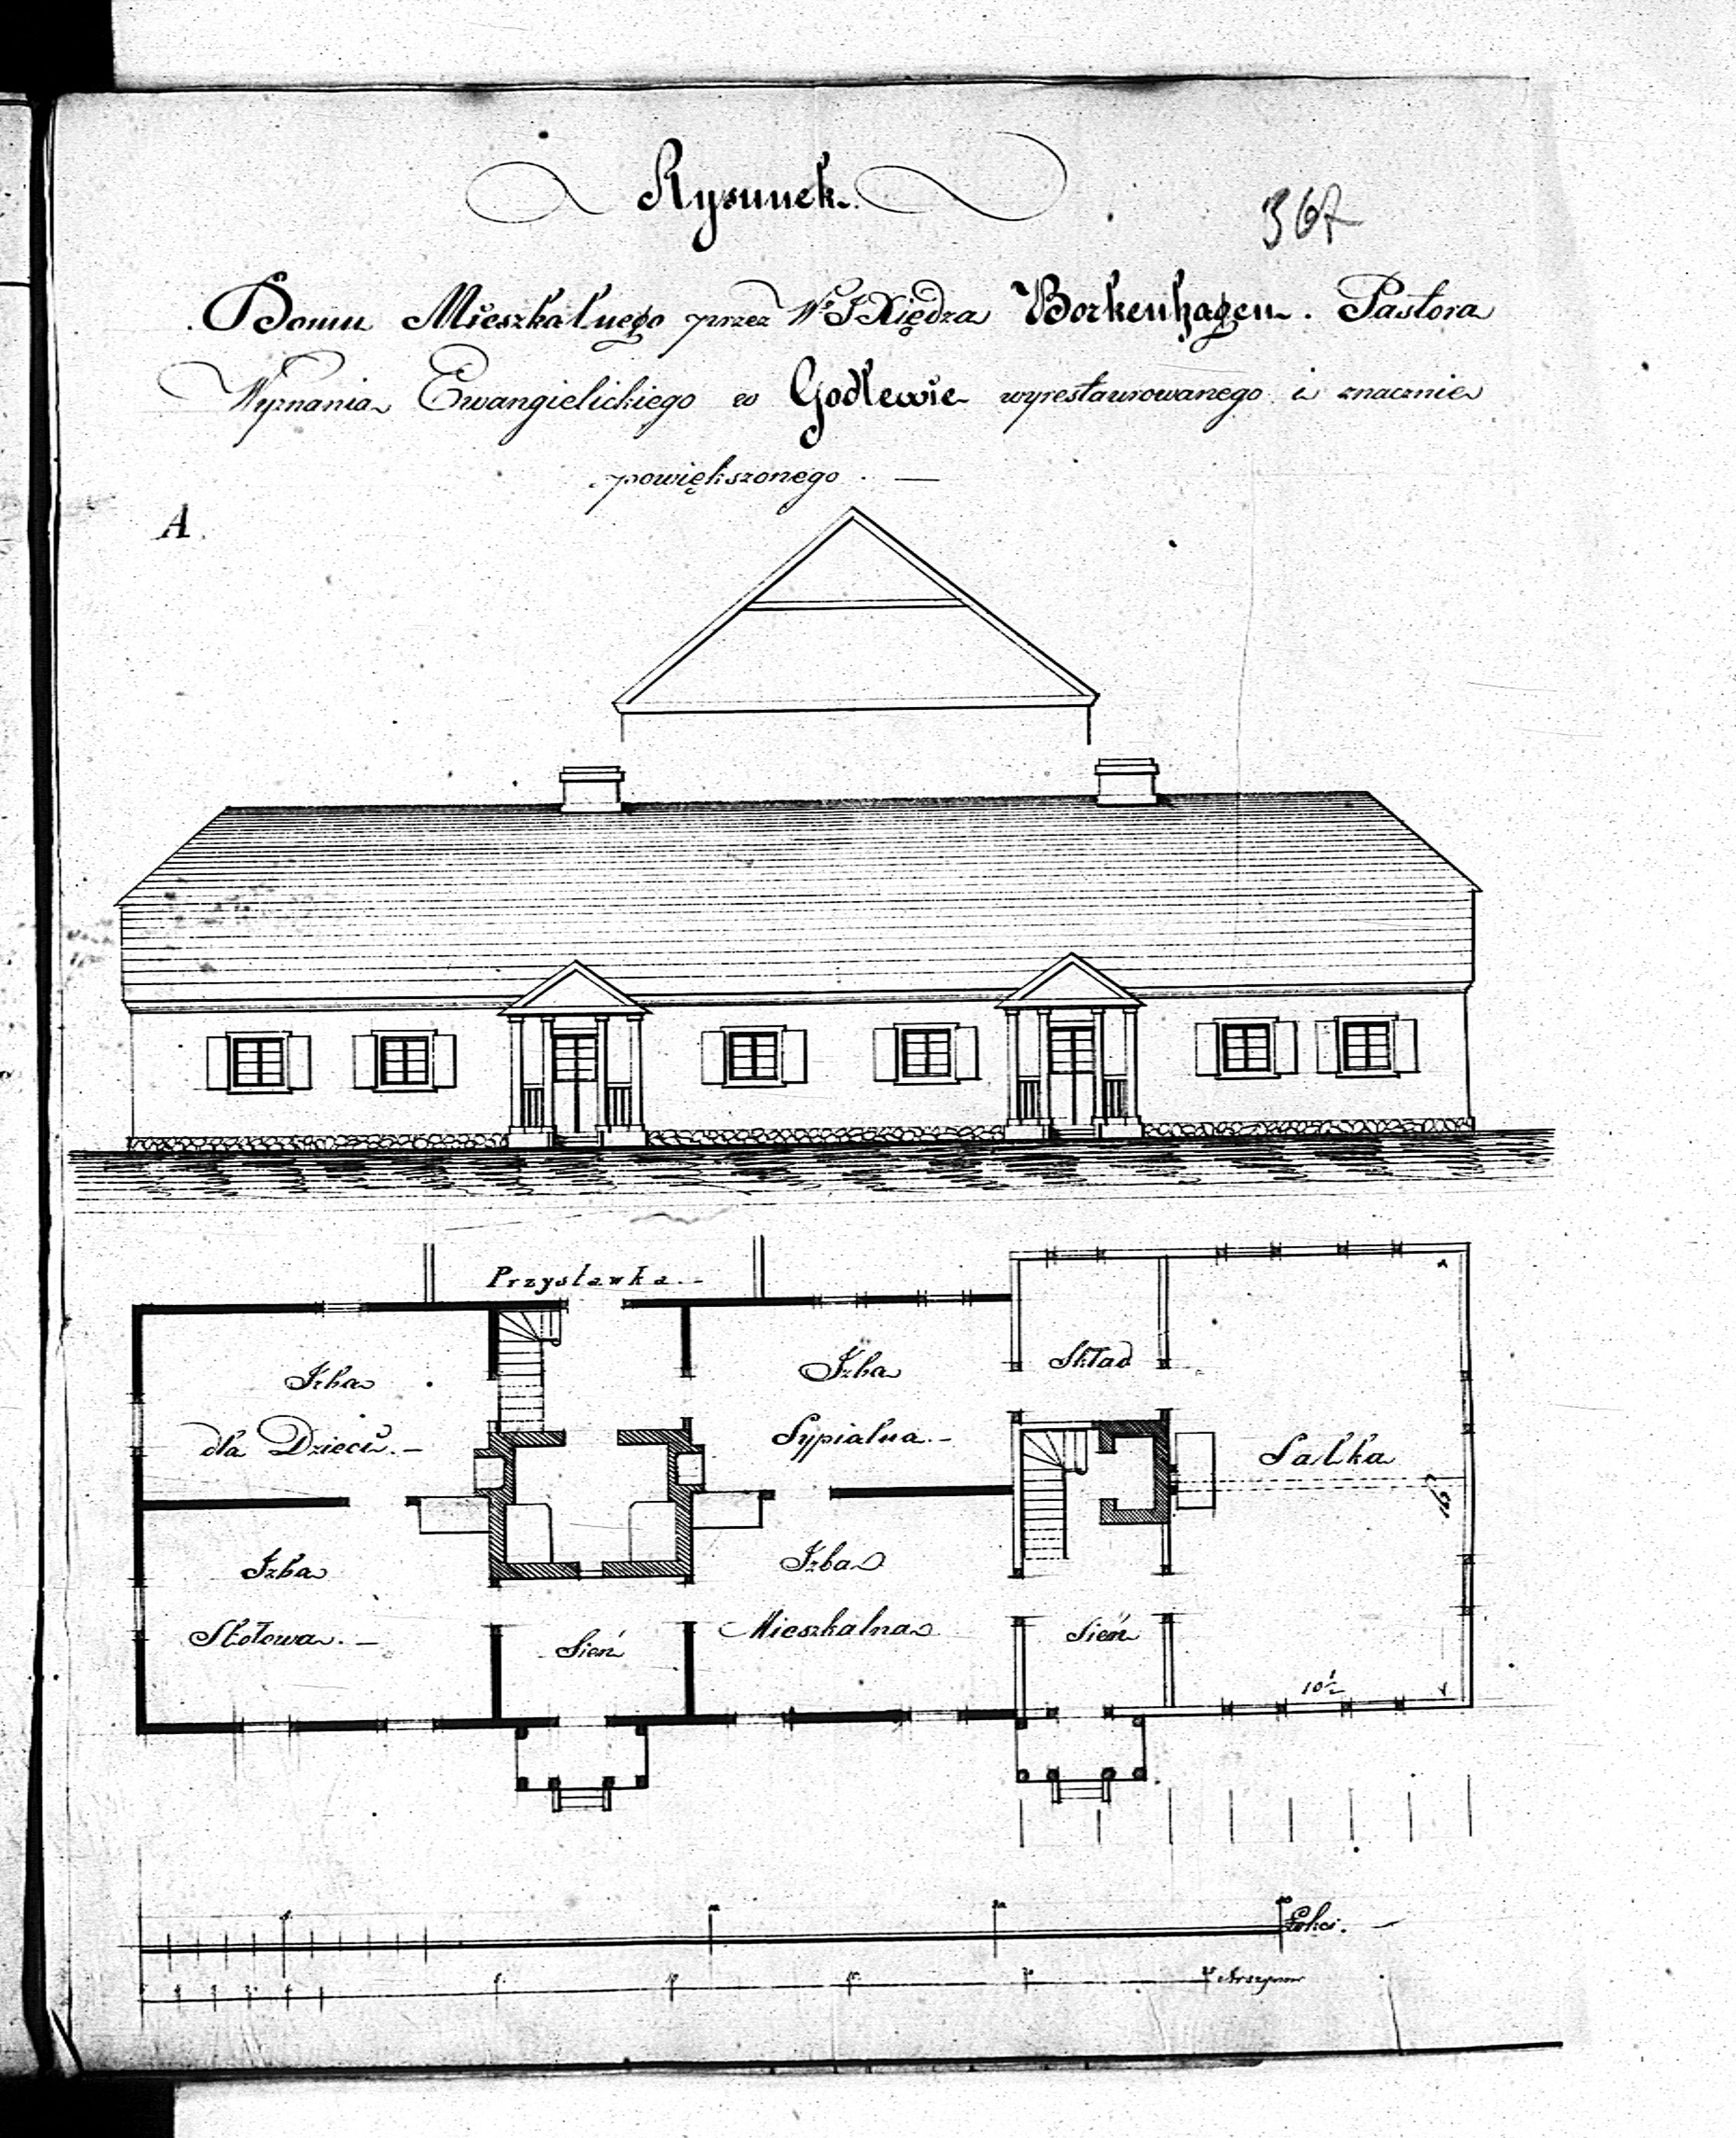 Rysunek.
367
Domu Mieszkalnego przez Wº JXiędza Borkenhagen. Pastora
Wyznania Ewangielickiego w Godlewie wyrestaurowanego i znacznie
powiększonego. —
A.
Przystawka. -
Izba
dla Dzieci. -
Izba
Sypialna. -
Skład
Salka
Izba
Stołowa. -
Sień
Izba
Mieszkalna
Sień
10½
Łokci. -
Arszynów